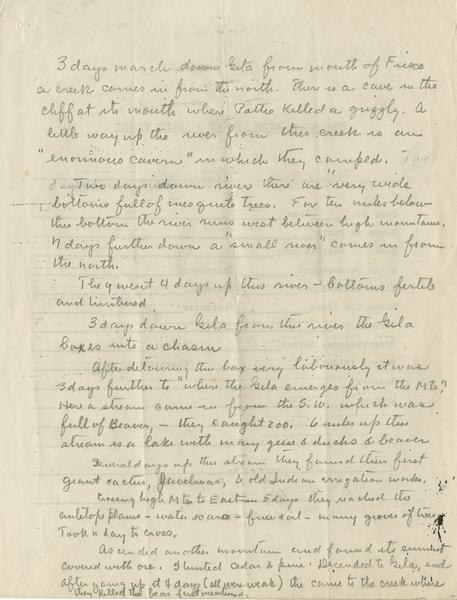 3 days march down Gila from mouth of Frisco
a creek comes in from the north. There is a cave in the
cliff at its mouth where Pattie killed a grizzly. A
little way up the river from this creek is an
"enormous cavern" in which they camped. Two
days Two days down river there are "very wide
bottoms full of mesquite trees. For ten miles below
this bottom the river runs west between high mountains.
7 days further down a "small river" comes in from
the north.
They went 4 days up this river - bottoms fertile
and timbered
3 days down Gila from this river the Gila
boxes into a chasm
After detouring the box very laboriously it was
3 days further to "where the Gila emerges from the Mts."
Here a stream came in from the S.W. which was
full of Beaver, - they caught 200. 6 miles up this
stream is a lake with many geese & ducks & beaver
Several days up this stream they found their first
giant cactus, Javelinas, & old Indian irrigation works.
Crossing high Mtn to East in 5 days they reached the
antelope plains - water scarce - fine soil - many groves of trees
Took a day to cross.
Ascended another mountain and found its summit
covered with ore. Stunted cedar & pine. Decended to Gila, and
after going up it 4 days (all very weak) the came to the creek where
they killed the bear first mentioned.